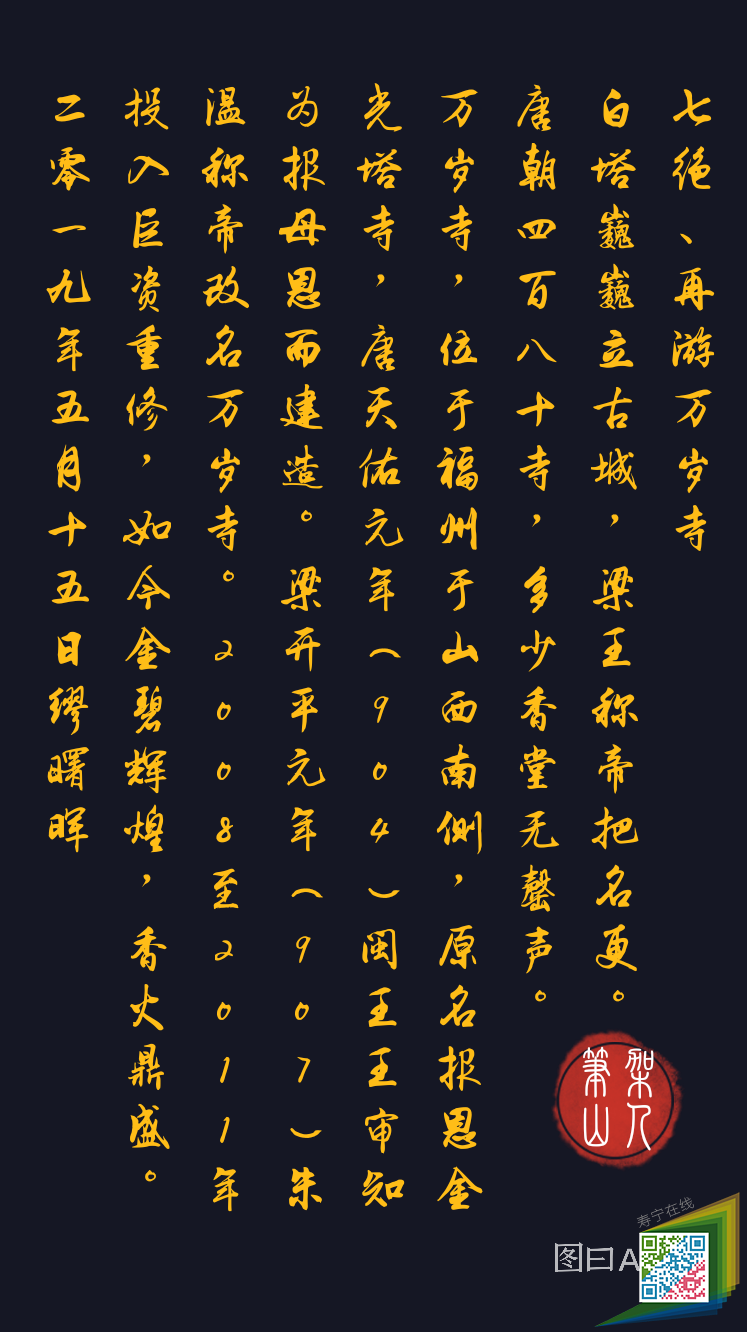 七绝、再游万岁寺
白塔巍巍立古城，梁王称帝把名更。
唐朝四百八十寺，多少香堂无罄声。
万岁寺，位于福州于山西南侧，原名报恩金
光塔寺，唐天佑元年（904）闽王王审知
为报母恩而建造。梁开平元年（907）朱
温称帝改名万岁寺。2008至2011年
投入巨资重修，如今金碧辉煌，香火鼎盛。
二零一九年五月十五日缪曙晖
架人
笔山
寿宁在线
图曰A